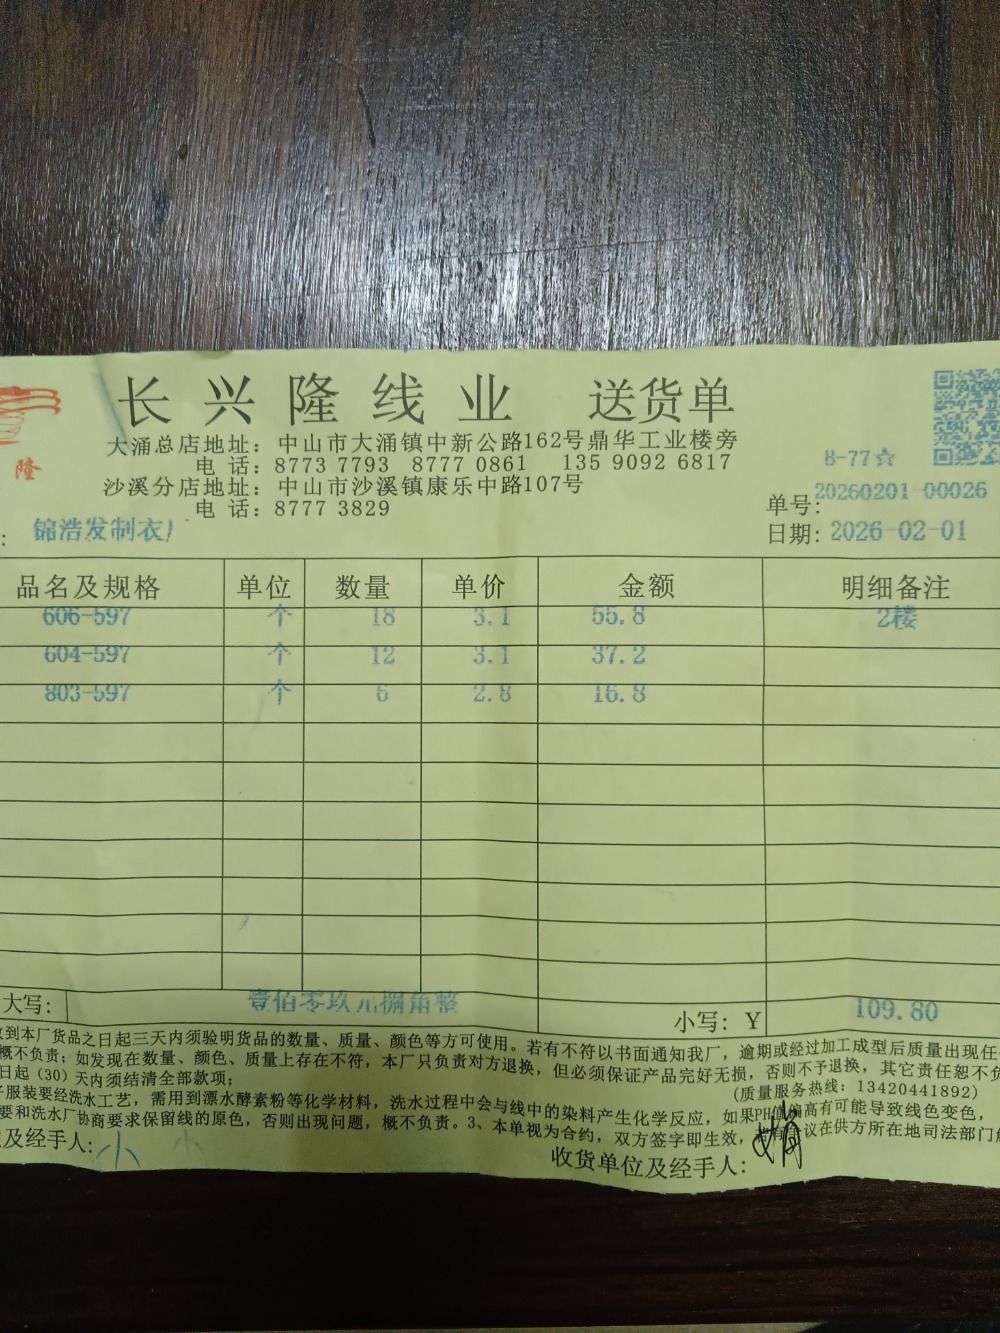 长兴隆线业 送货单
隆
大涌总店地址：中山市大涌镇中新公路162号鼎华工业楼旁
电 话：8773 7793 8777 0861 135 9092 6817
B-77☆
沙溪分店地址：中山市沙溪镇康乐中路107号
电 话：8777 3829
单号：20260201-00026
: 锦浩发制衣厂
日期：2026-02-01
品名及规格 单位 数量 单价 金额 明细备注
606-597 个 18 3.1 55.8 2楼
604-597 个 12 3.1 37.2
803-597 个 6 2.8 16.8
大写： 壹佰零玖元捌角整 小写：￥ 109.80
到本厂货品之日起三天内须验明货品的数量、质量、颜色等方可使用。若有不符以书面通知我厂，逾期或经过加工成型后质量出现任
概不负责；如发现在数量、颜色、质量上存在不符，本厂只负责对方退换，但必须保证产品完好无损，否则不予退换，其它责任恕不负
日起（30）天内须结清全部款项；
(质量服务热线：13420441892)
服装要经洗水工艺，需用到漂水酵素粉等化学材料，洗水过程中会与线中的染料产生化学反应，如果PH值偏高有可能导致线色变色，
要和洗水厂协商要求保留线的原色，否则出现问题，概不负责。3、本单视为合约，双方签字即生效，议在供方所在地司法部门
及经手人: 小 小
收货单位及经手人: